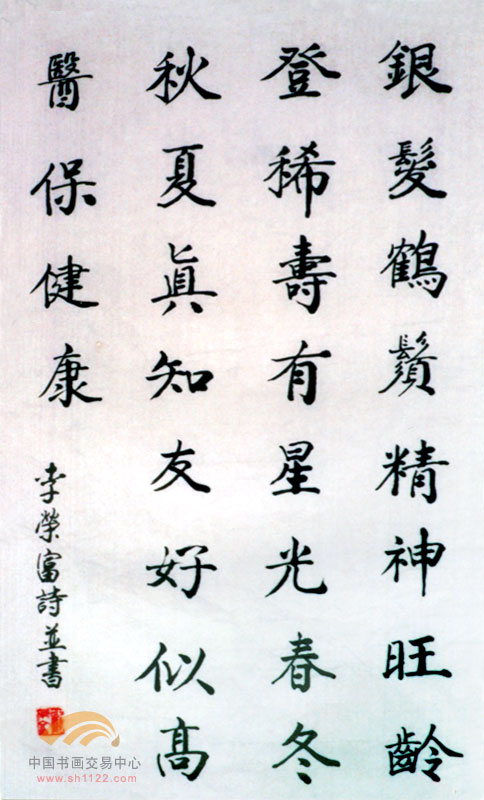 銀髮鶴鬚精神旺齡
登稀壽有星光春冬
秋夏眞知友好似高
醫保健康
李榮富詩並書
中国书画交易中心
www.sh1122.com